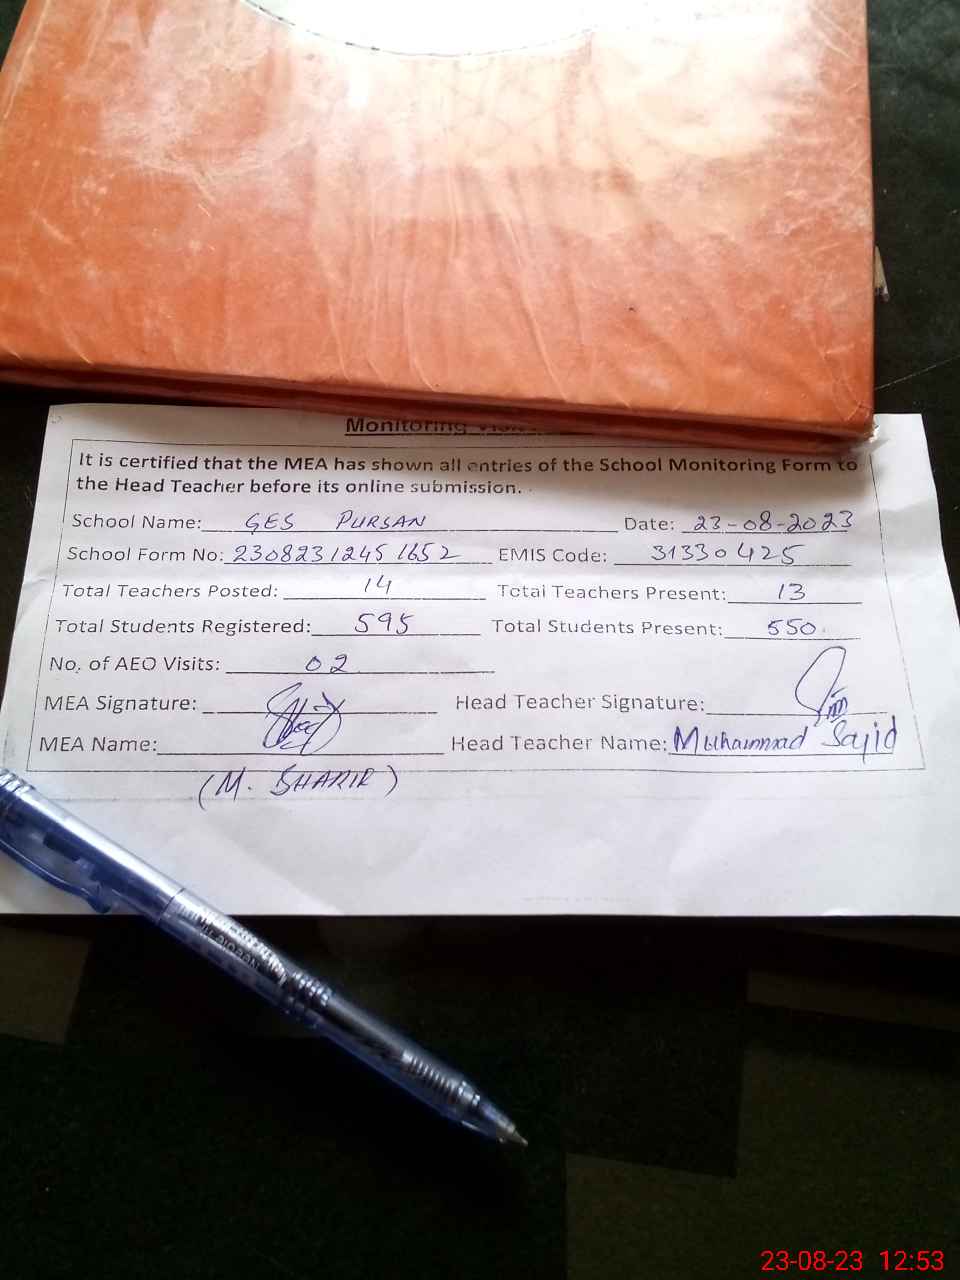 Monitoring
It is certified that the MEA has shown all entries of the School Monitoring Form to
the Head Teacher before its online submission.
School Name: GES PURSAN Date: 23-08-2023
School Form No: 23082312451652 EMIS Code: 31330425
Total Teachers Posted: 14 Total Teachers Present: 13
Total Students Registered: 595 Total Students Present: 550
No. of AEO Visits: 02
MEA Signature: Head Teacher Signature:
MEA Name: Head Teacher Name: Muhammad Sajid
(M.
23-08-23 12:53